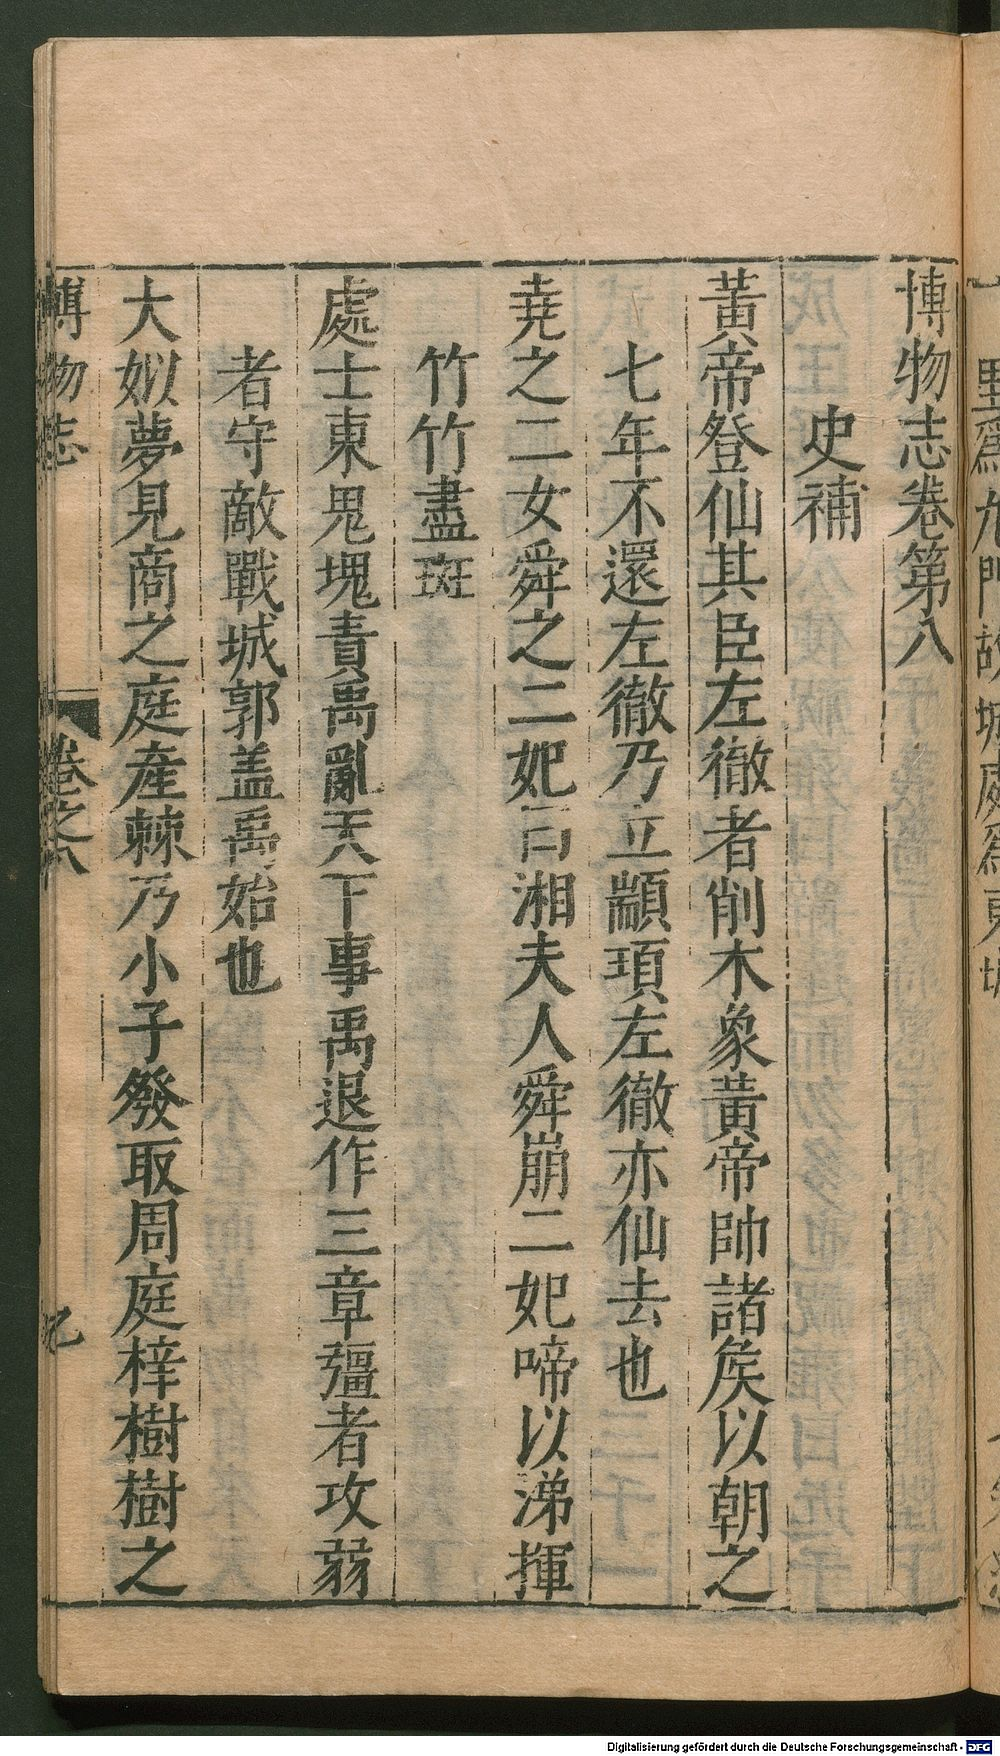 博物志卷第八
史補
黃帝登仙其臣左徹者削木象黃帝帥諸矦以朝之
七年不還左徹乃立顓頊左徹亦仙去也
堯之二女舜之二妃曰湘夫人舜崩二妃啼以涕揮
竹竹盡斑
處士東鬼塊責禹亂天下事禹退作三章彊者攻弱
者守敵戰城郭盖禹始也
大姒夢見商之庭產棘乃小子發取周庭梓樹樹之
博物志
卷之八
Digitalisierung gefördert durch die Deutsche Forschungsgemeinschaft - DFG